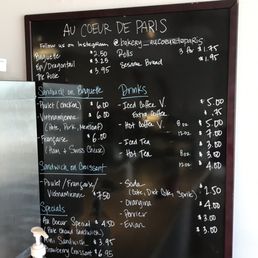 AU COEUR DE PARIS
Follow us on Instagram @bakery_aucoeurdeparis
Baguette $2.50 Rolls 3 for $1.75
Epi/Dragontail $3.25 Sesame Bread $1.95
Pie Rose $3.95
Sandwich on Baguette
- Poulet (chicken) $6.00
- Vietnamienne $6.00
(Pate, Pork, Meatloaf)
- Française $6.00
(Ham + Swiss Cheese)
Sandwich on Croissant
- Poulet/Française/
Vietnamienne $7.50
Specials
Au Coeur Special $4.50
(Pate Chaud Sandwich)
Mini Sandwich $3.95
Strawberry Croissant $6.95
Drinks
- Iced Coffee V. $5.00
- Hot Coffee V. 8oz $5.00
12oz $7.00
- Iced Tea $3.00
- Hot Tea 8oz $3.00
12oz $4.00
- Soda $1.50
(Coke, Diet Coke, Sprite)
- Orangina $4.00
- Perrier $3.00
- Evian $3.00